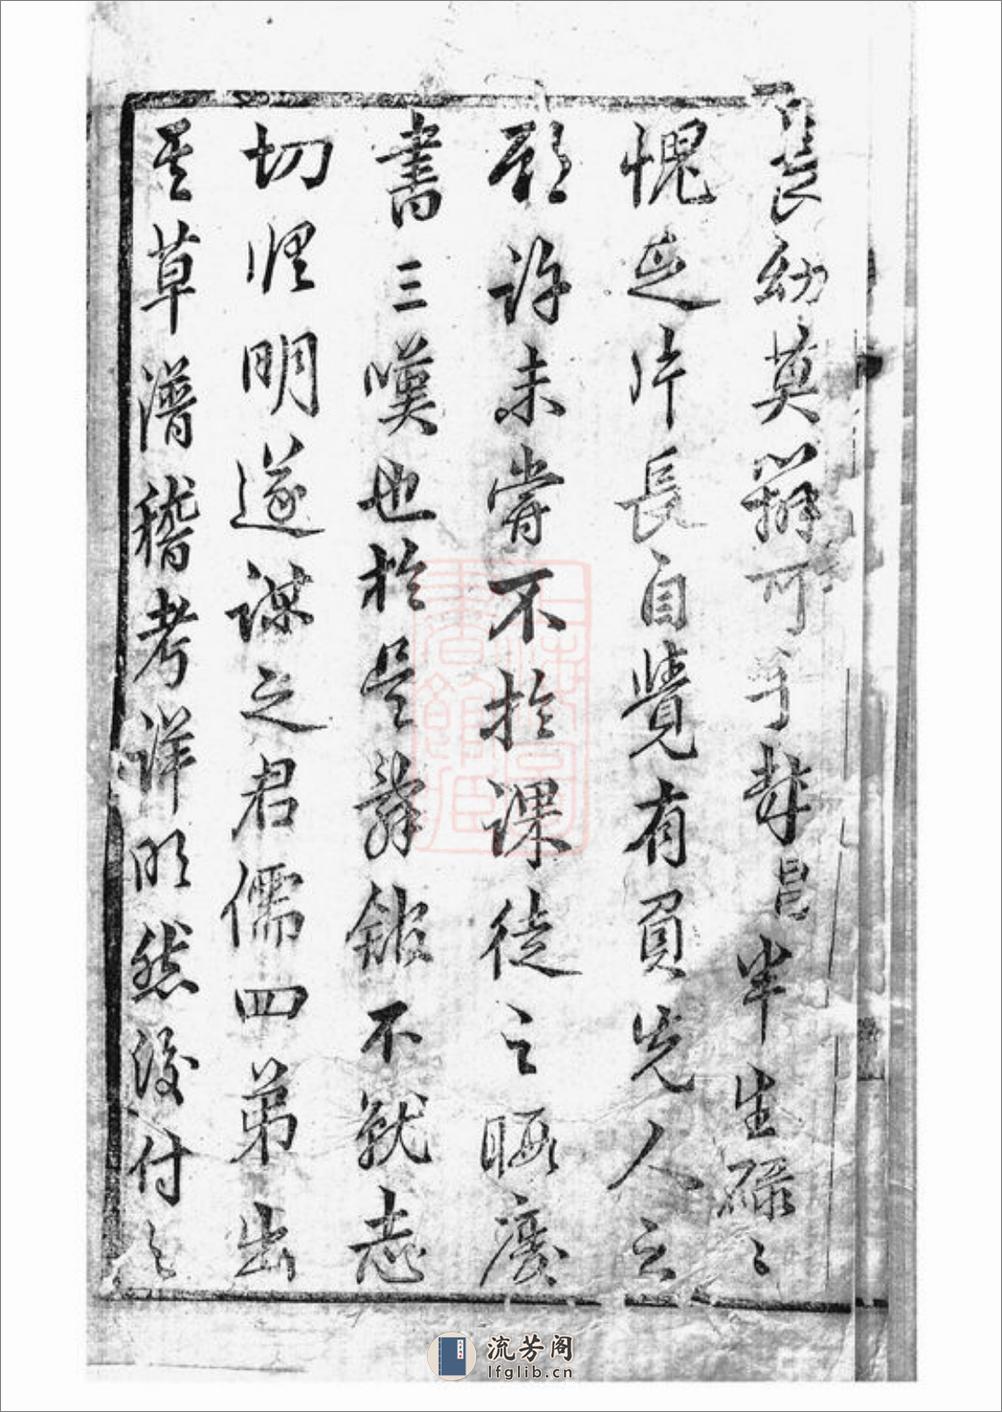 長幼莫辨可乎哉昌年半生碌〻
愧乏片長自覺有負先人之
許未嘗不於課徒之暇廢
書三嘆也於是辭館不就志
切修明遂謀之君儒四弟出
其草譜稽考詳明然後付之
流芳阁
lfglib.cn